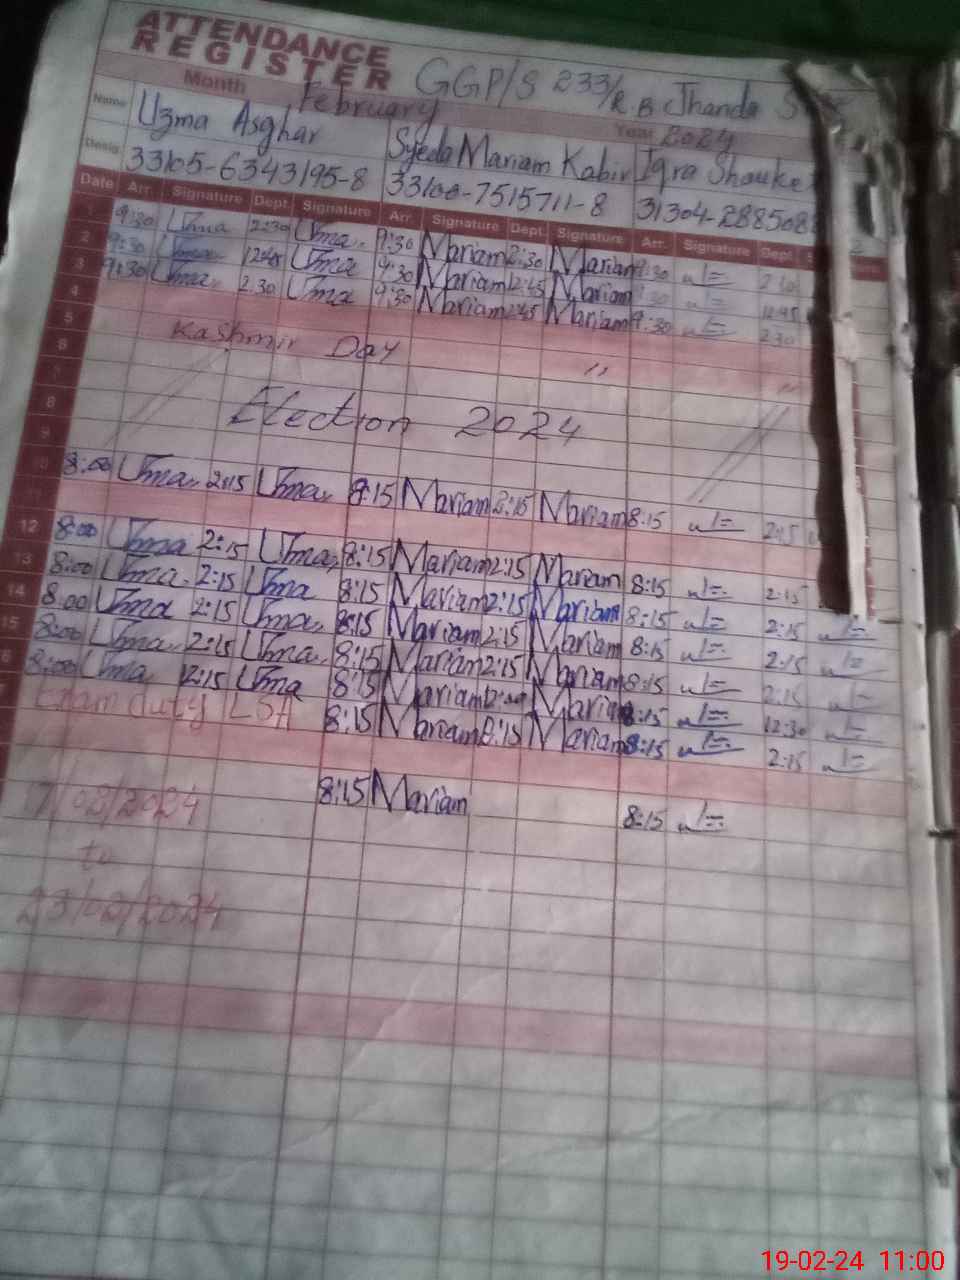 ATTENDANCE
REGISTER GGP/S 233/R.B Jhanda
Month February Year 2024
Name Uzma Asghar Syeda Mariam Kabir Iqra Shouket
Desig. 33105-6343195-8 33100-7515711-8 31304-288508
Date Arr. Signature Dept. Signature Arr. Signature Dept. Signature Arr. Signature Dept.
1 9:30 Uzma 2:30 Uzma 9:30 Mariam 2:30 Mariam 9:30 2:30
2 9:30 Uzma 12:45 Uzma 9:30 Mariam 12:45 Mariam 9:30 12:45
3 9:30 Uzma 2:30 Uzma 9:30 Mariam 2:45 Mariam 9:30 2:30
4
5 Kashmir Day "
6
7
8 Election 2024
9
10 8:00 Uzma 2:15 Uzma 8:15 Mariam 2:15 Mariam 8:15 2:15
11
12 8:00 Uzma 2:15 Uzma 8:15 Mariam 2:15 Mariam 8:15 2:15
13 8:00 Uzma 2:15 Uzma 8:15 Mariam 2:15 Mariam 8:15 2:15
14 8:00 Uzma 2:15 Uzma 8:15 Mariam 2:15 Mariam 8:15 2:15
15 8:00 Uzma 2:15 Uzma 8:15 Mariam 2:15 Mariam 8:15 2:15
16 8:00 Uzma 12:15 Uzma 8:15 Mariam Mariam 8:15 12:30
Exam duty LSA 8:15 Mariam 2:15 Mariam 8:15 2:15
17/02/2024 8:15 Mariam 8:15
to
23/02/2024
19-02-24 11:00